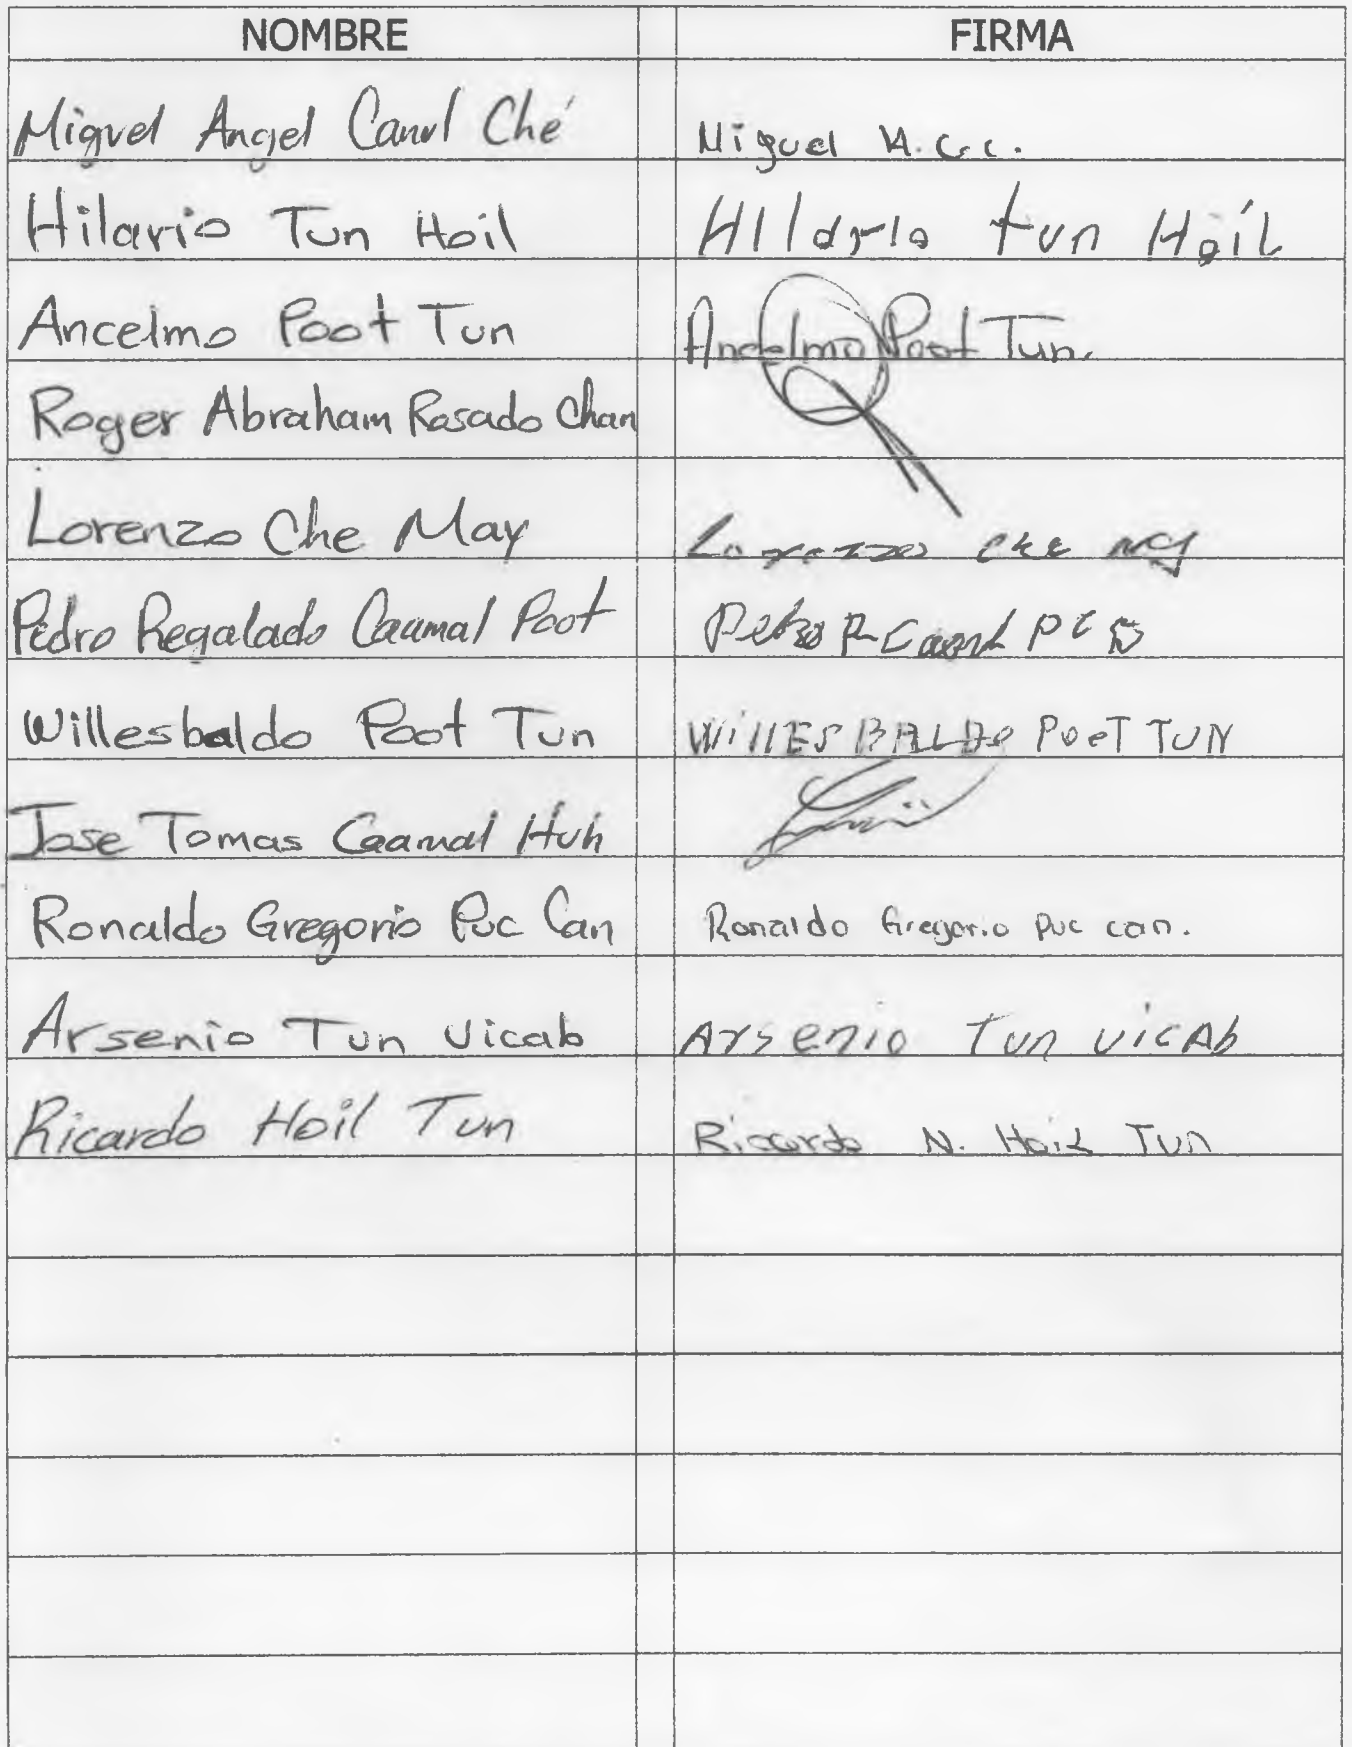 NOMBRE FIRMA
Miguel Angel Canul Ché Miguel A. C. c.
Hilario Tun Hoil HIlario tun Hoil
Ancelmo Poot Tun Ancelmo Poot Tun.
Roger Abraham Rosado Chan
Lorenzo Che May Lorenzo che
Pedro Regalado Caamal Poot Pedro R Caaml
Willesbaldo Poot Tun WillESBALDo PooT TUN
Jose Tomas Caamal Huh
Ronaldo Gregorio Puc Can Ronaldo Gregorio Puc can.
Arsenio Tun Uicab Arsenio Tun UicAb
Ricardo Hoil Tun Ricardo N. Hoil Tun